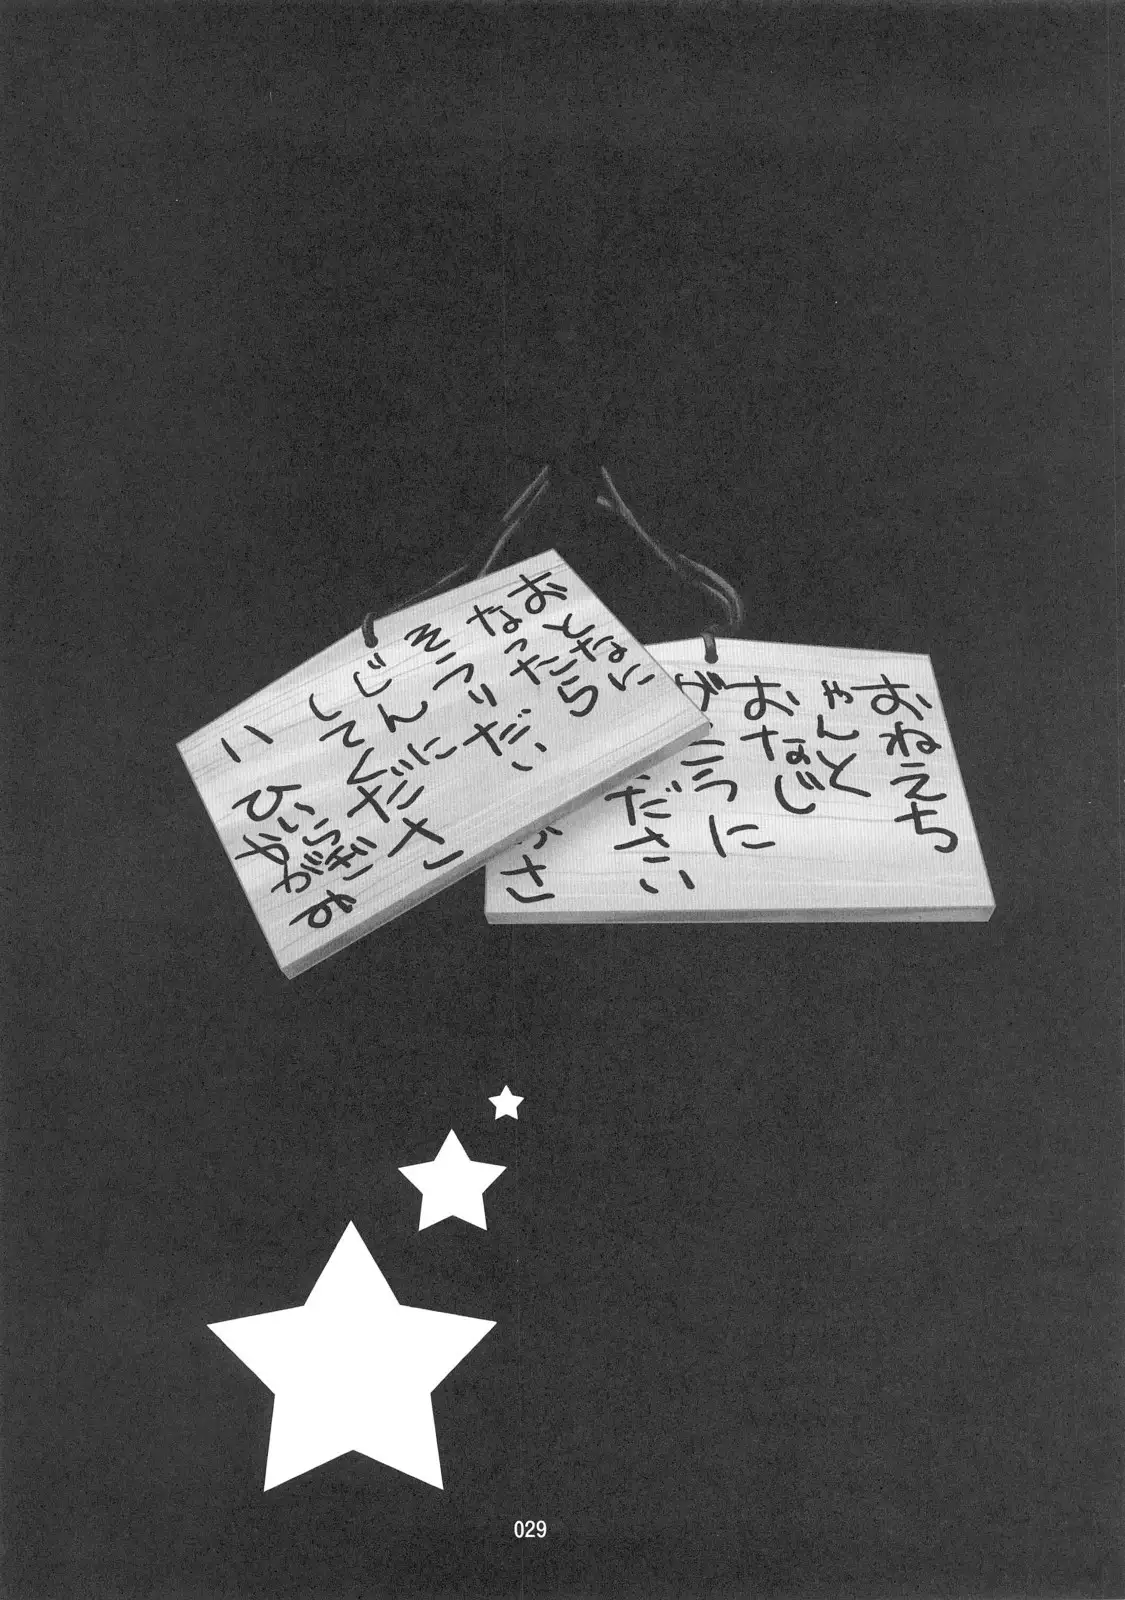 おねえち
ゃんと
おなじ
が
こうに
ださい
さ
おとなに
なったら
そうりだい
じんに
してくださ
い
ひいらぎ
かがみ
029